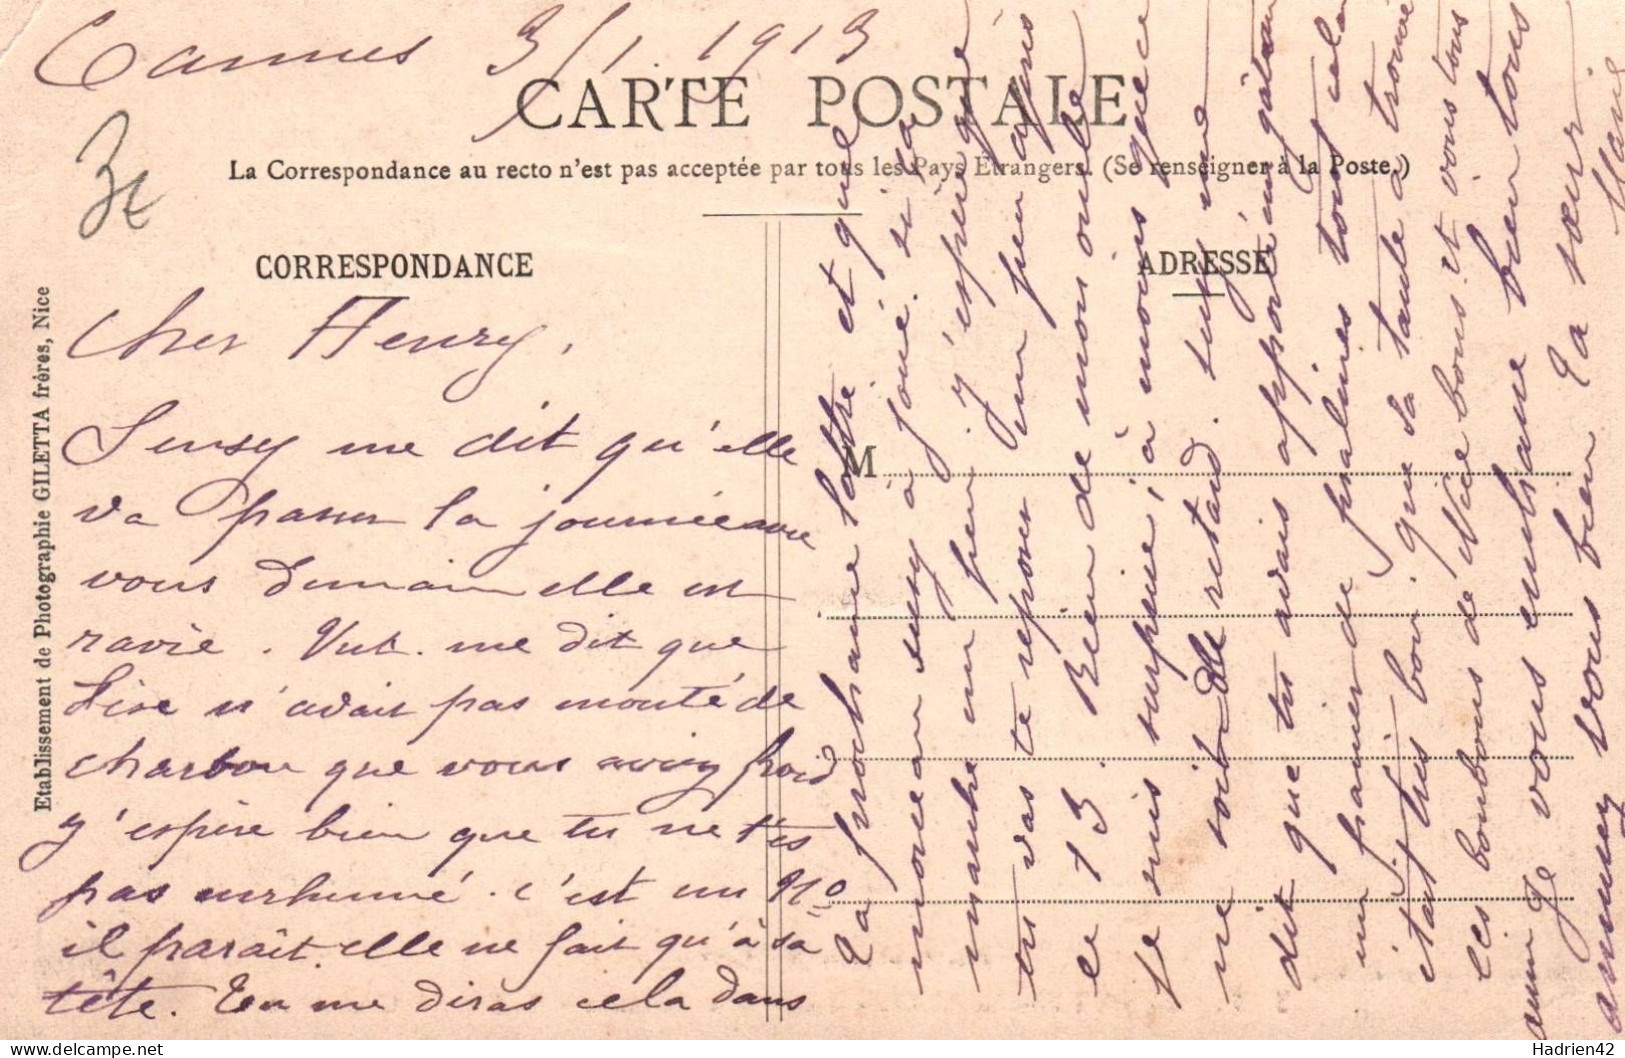 Cannes 3/1. 1913
3f
CARTE POSTALE
La Correspondance au recto n'est pas acceptée par tous les Pays Étrangers. (Se renseigner à la Poste.)
CORRESPONDANCE
ADRESSE
M
Etablissement de Photographie GILETTA frères, Nice
Cher Henry,
Susy me dit qu'elle
va passer la journée avec
vous demain elle est
ravie. me dit que
Lise n'avait pas monté de
charbon que vous aviez froid
j'espère bien que tu ne t'es
pas enrhumé. c'est un no
il paraît. elle ne fait qu'à sa
tête. Tu me diras cela dans
la prochaine lettre et quel
morceau Susy a joué. si ça
marche un peu. j'espère que
tu vas te reposer un peu après
le 13. Rien de mon oncle
je suis surprise, à moins que ce
ne soit du retard. Susy me
dit que tu avais apporté un gâteau
un panier de pralines tout cela
était très bon. que sa tante a trouvé
les bonbons de Nice bons. et vous tous
Je vous embrasse bien tous
aimez vous bien La sœur
Marie
Hadrien42